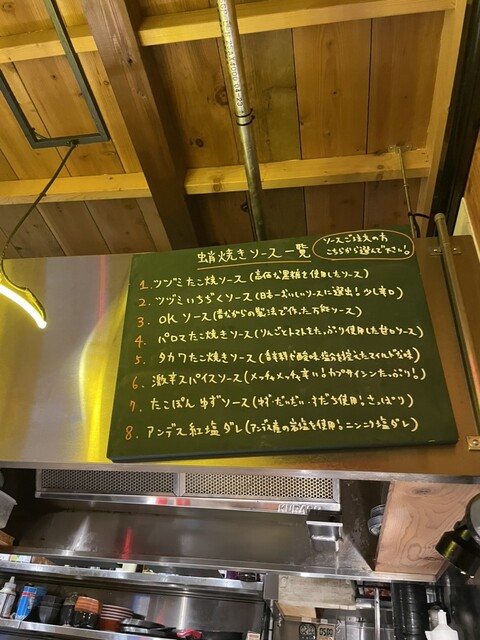 蛸焼きソース一覧
ソースご注文の方
こちらから選んで下さい。
1. ツヅミたこ焼ソース (高価な黒糖を使用したソース)
2. ツヅミいちぢくソース (日本一おいしいソースに選出!少し辛口)
3. OKソース (昔ながらの製法で作った万能ソース)
4. パロマたこ焼きソース (りんごとトマトをたっぷり使用した甘口ソース)
5. タカワたこ焼きソース (香辛料や酸味、塩分を控えたマイルドな味)
6. 激辛スパイスソース (メッチャメッチャ辛い!カプサイシンたっぷり!)
7. たこぽんゆずソース (ゆず・だいだい・すだち使用!さっぱり)
8. アンデス紅塩ダレ (アンデス産の岩塩を使用!ニンニク塩ダレ)